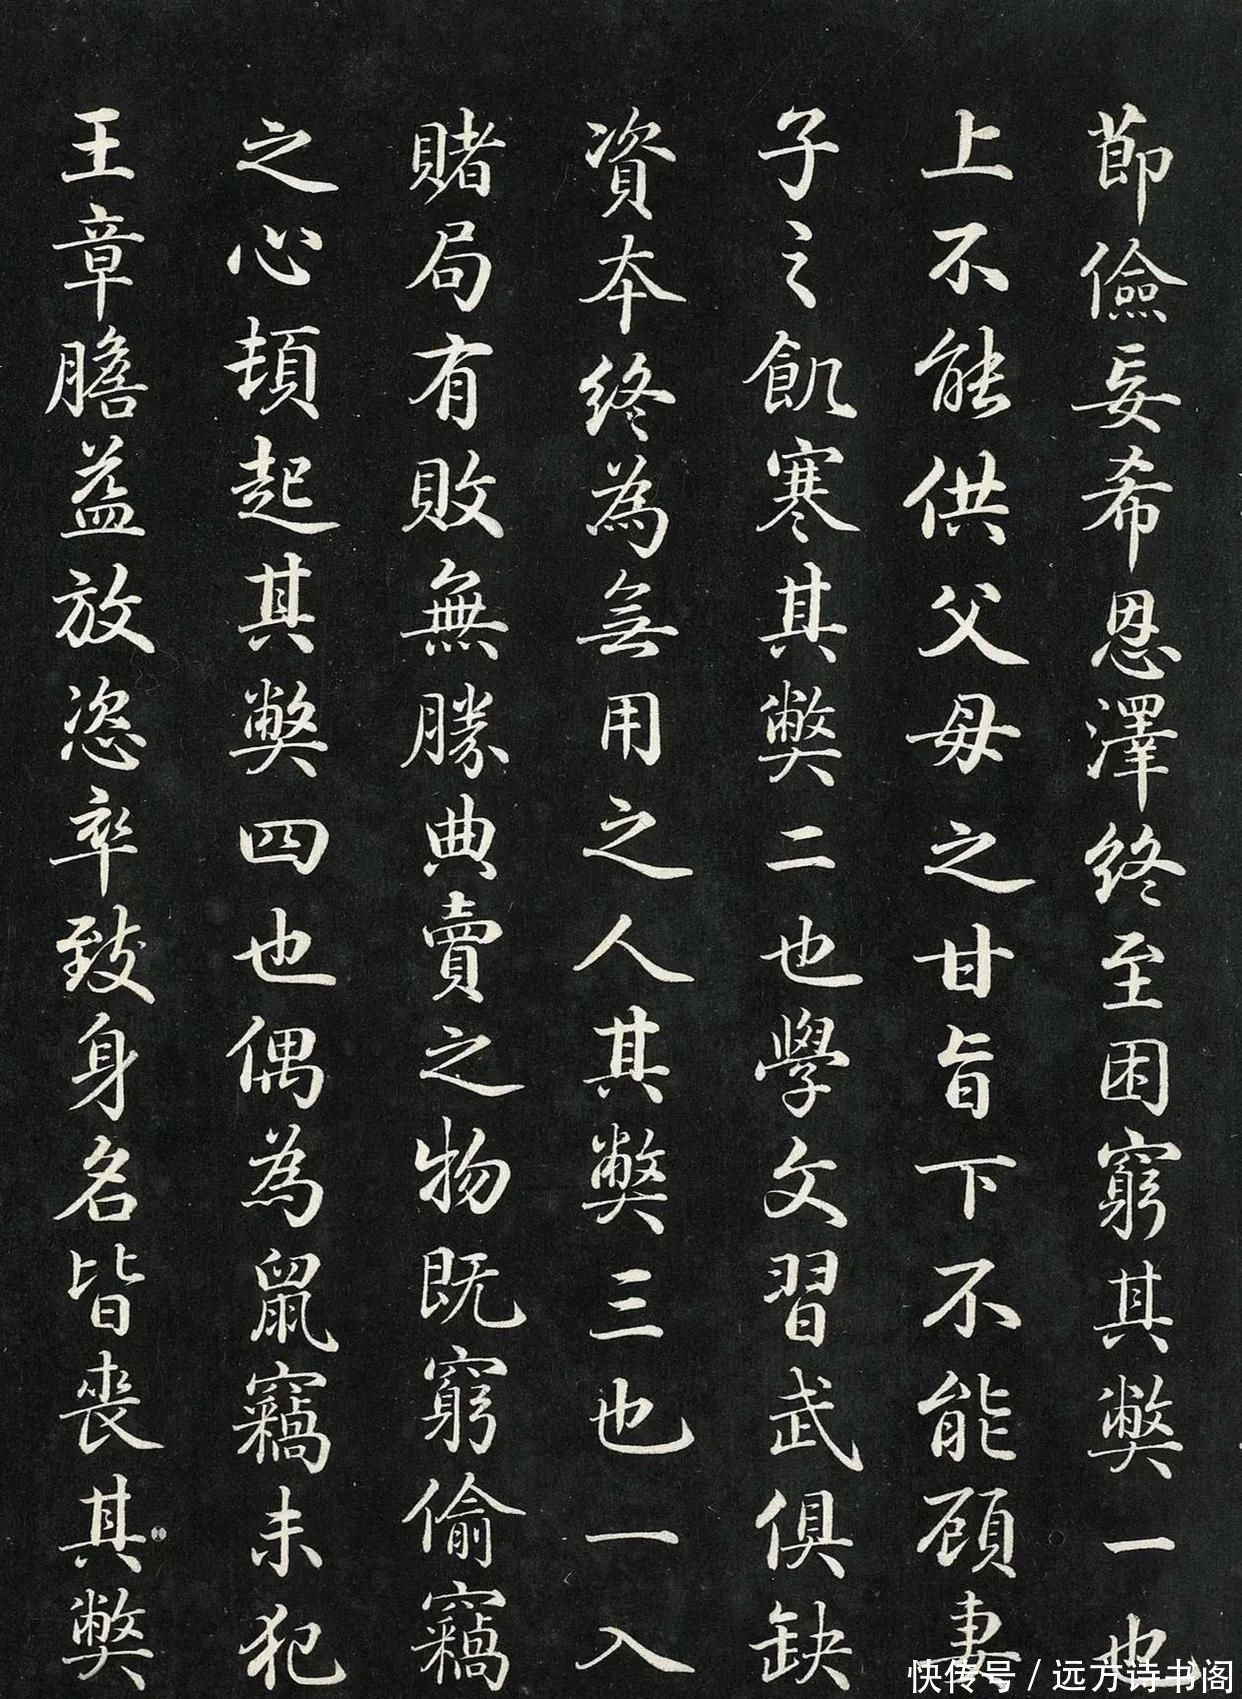 節儉妄希恩澤終至困窮其弊一也
上不能供父母之甘旨下不能顾妻
子之飢寒其弊二也學文習武俱缺
資本終為無用之人其弊三也一入
賭局有敗無勝典賣之物既窮偷竊
之心頓起其弊四也偶為鼠竊未犯
王章膽益放恣率致身名皆喪其弊
快传号 / 远方诗书阁